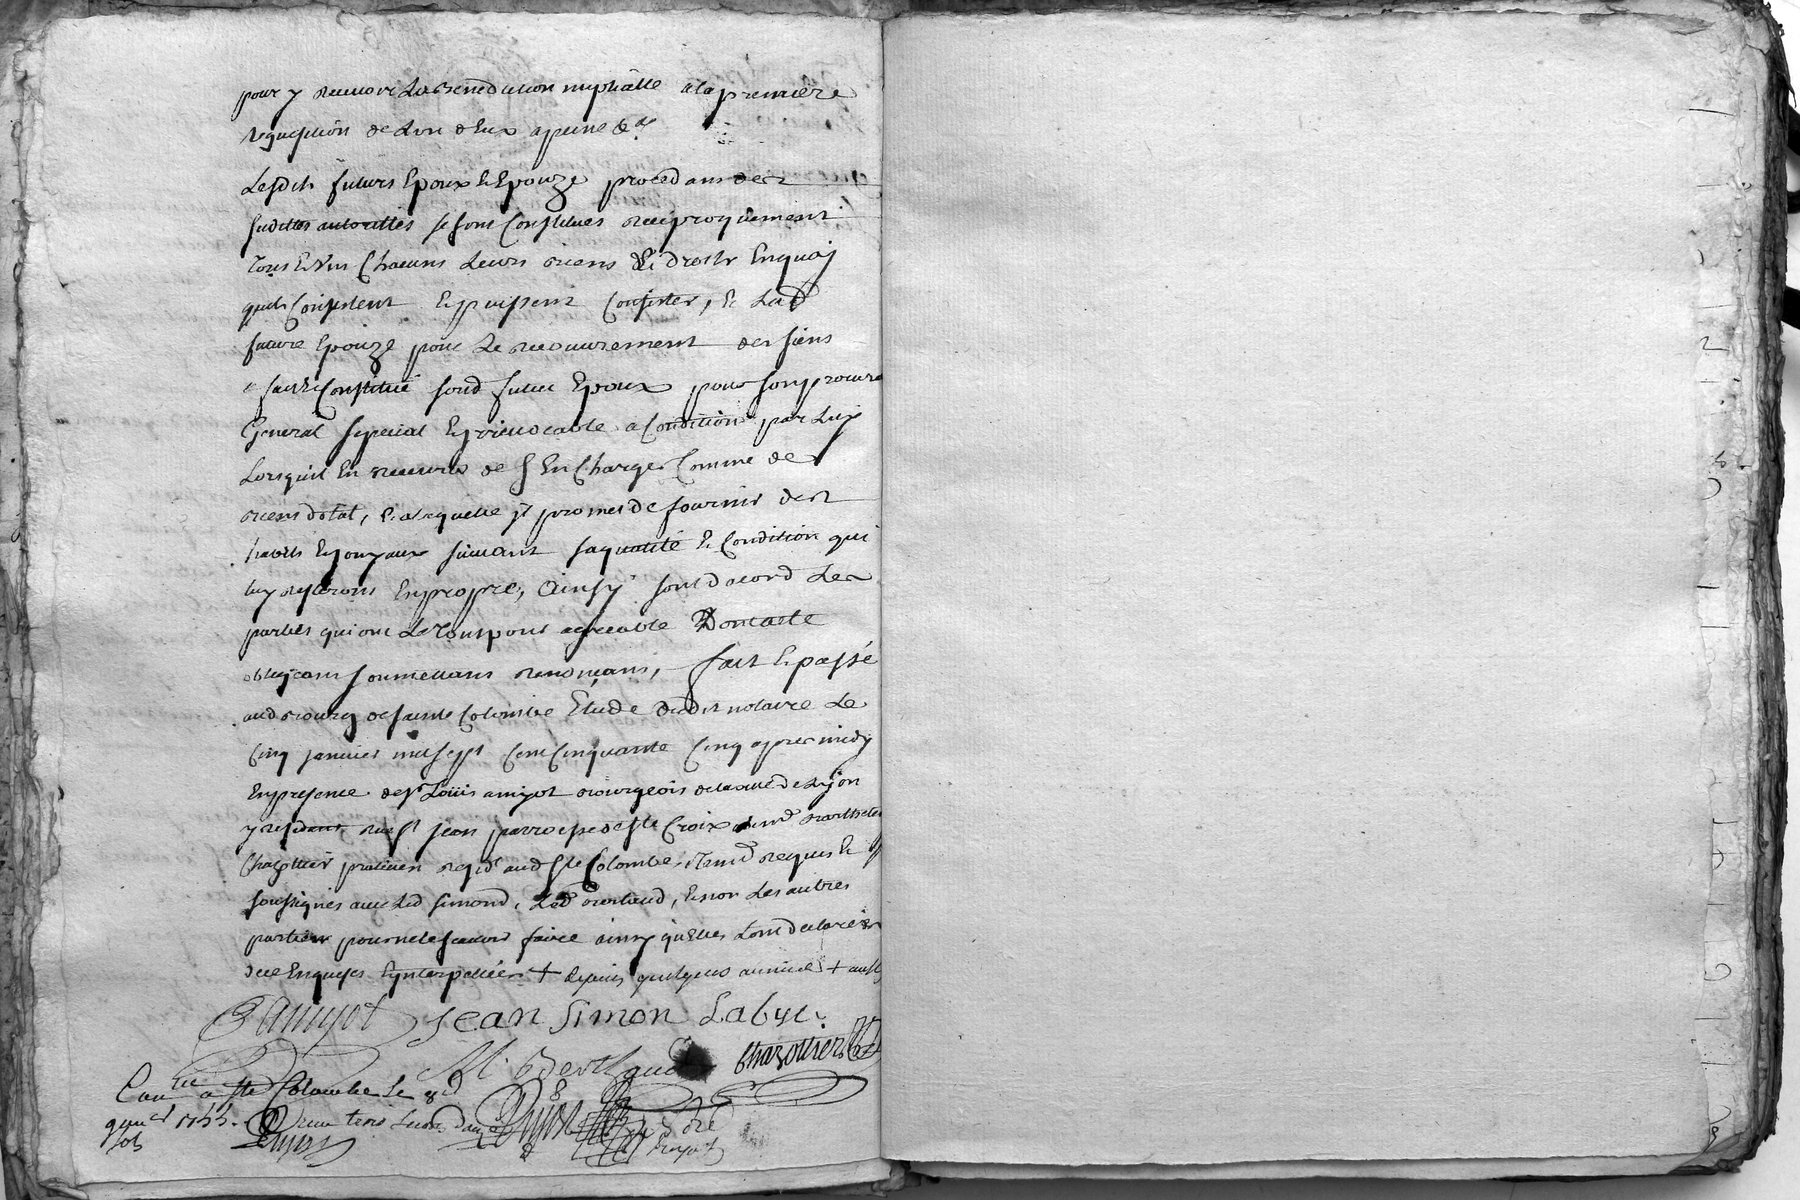 pour y recevoir La Benediction nuptialle a la premiere
requisition de Lun d'Eux a peine &a
Lesdits futurs Epoux & Epouze procedans des
susdittes autorittés se sont Constitues reciproquement
Tous & Vns Chacuns Leurs Biens & droits En quoy
quils Consistent & puissent Consister, & Lad
future Epouze pour Le recouvrement des siens
a fait & Constitué sond futur Epoux pour son procure
General special & yrrevocable a Condition par Luy
Lorsquil En recevra de s'En Charger Comme de
Biens dotal, & a Laquelle jl promet de fournir des
habits & joyaux suivant sa qualité & Condition qui
luy resteront En propre, Ainsy sont d'acord Les
parties qui ont Le Tout pour agreable Dont acte
obligeant soumettans renonçans, fait & passé
aud Bourg de sainte Colombe Etude dudit notaire Le
Cinq janvier mil sept Cent Cinquante Cinq apres midy
En presence de sr Loüis amyot Bourgeois de la ville de Lyon
y residant rue st jean parroisse de ste Croix
Chazottier praticien resid aud ste Colombe, requis &
soussignés avec Led simond, Led Bertaud, & non Les autres
parties pour ne le scavoir faire ainsy qu'Elles Lont declarées
de ce Enquises & ynterpellées + depuis quelques années +
amyot jean simon Laby
M. Berthaud Chazottier
a ste Colombe Le
1755. trois